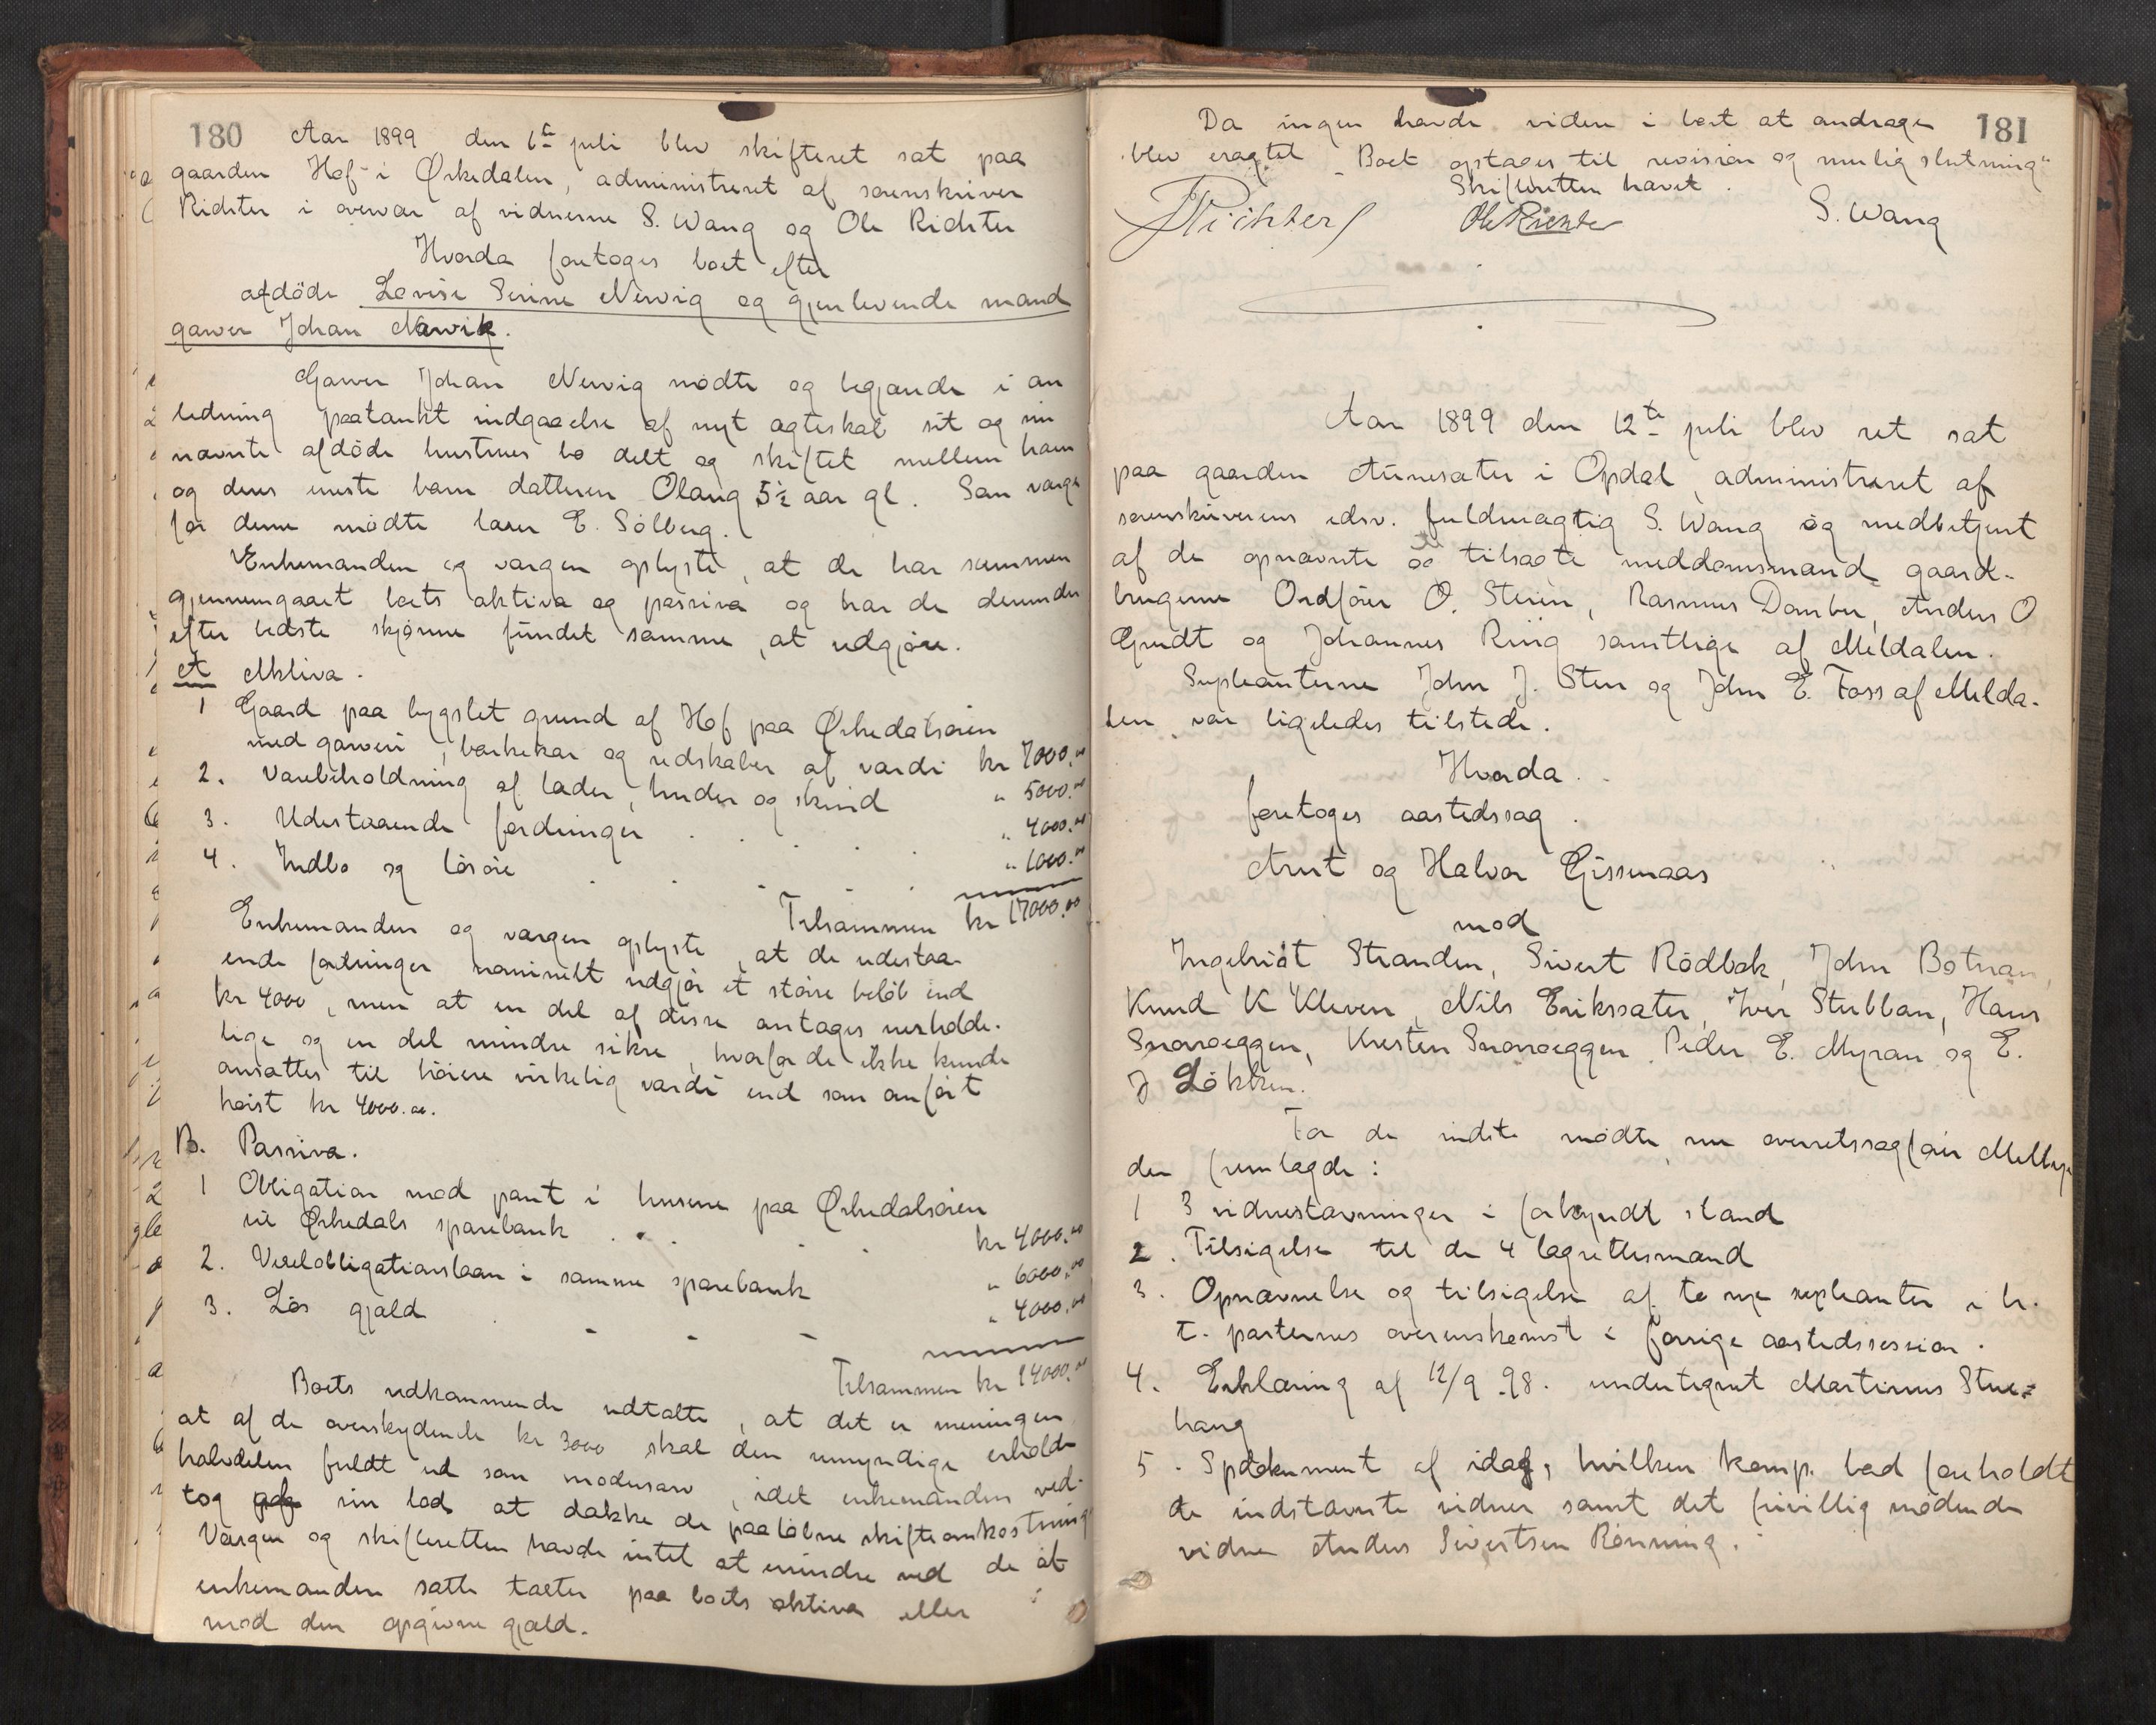 180 Aar 1899 den 6te juli blev skifteret sat paa
gaarden Hof i Ørkedalen, administreret af sorenskriver
Richter i overvær af vidnerne S. Wang og Ole Richter
Hvorda foretoges boet efter
afdöde Lovise Serine Nervig og gjenlevende mand
garver Johan Narvik.
Garver Johan Nervig mödte og begjærede i an
ledning paatænkt indgaaelse af nyt ægteskab sit og
nævnte afdöde hustrues bo delt og skiftet mellem ham
og deres eneste barn datteren Olaug 5½ aar gl. Som værge
for denne mödte lærer E. Solberg.
Enkemanden og værgen oplyste, at de har sammen
gjennemgaaet boets aktiva og passiva og har de derunder
efter bedste skjönne fundet samme, at udgjöre.
A Aktiva.
1 Gaard paa bygslet grund af Hof paa Ørkedalsören
med garveri, barkekar og redskaber af værdi kr 7000.00
2. Varebeholdning af læder, huder og skind " 5000.00
3. Udestaaende fordringer . . . " 4000.00
4. Indbo og lösöre . . . . " 1000.00
Tilsammen kr 17000.00
Enkemanden og værgen oplyste, at de udestaa-
ende fordringer nominelt udgjör et större belöb end
kr 4000, men at en del af disse antages uerholde-
lige og en del mindre sikre, hvorfor de ikke kunde
ansættes til höiere virkelig værdi end som anfört
höist kr 4000.00.
B. Passiva.
1 Obligation mod pant i husene paa Ørkedalsören
til Ørkedals sparebank . . . . kr 4000.00
2. Vexelobligationslaan i samme sparebank " 6000.00
3. Lös gjæld . - - - " 4000.00
Tilsammen kr 14000.00
Boets vedkommende udtalte, at det er meningen
at af de overskydende kr 3000 skal den umyndige erholde
halvdelen fuldt ud som mödrearv, idet enkemanden ved-
tog sin lod at dække de paalöbne skifteomkostning
Værgen og skifteretten havde intet at erindre ved de af
enkemanden satte taxter paa boets aktiva eller
mod den opgivne gjæld.
Da ingen havde videre i boet at andrage 181
blev eragtet "Boet optages til revision og mulig slutning"
Skifteretten hævet.
Richter Ole Richter S. Wang
Aar 1899 den 12te juli blev ret sat
paa gaarden Aunesæter i Opdal, administreret af
sorenskriverens edsv. fuldmægtig S. Wang og medbetjent
af de opnævnte og tilsagte meddomsmænd gaard-
brugerne Ordförer O. Steien, Rasmus Dombu, Anders O
Grudt og Johannes Ring samtlige af Meldalen.
Supleanterne John J. Steen og John E. Foss af Melda-
len, var ligeledes tilstede.
Hvorda
foretoges aastedssag
Arnt og Halvor Gissenaas
mod
Ingebrigt Stranden, Sivert Rödbæk, John Botnan,
Knud K Kleven, Nils Erikssæter, Iver Stubban, Hans
Snoroeggen, Kresten Snoroeggen, Peder E. Myran og E.
J Lökken.
For de indste mödte nu overretssagförer Mellbye
der fremlagde:
1 3 vidnestævninger i forkyndt stand
2. Tilsigelse til de 4 lagrettesmænd
3. Opnævnelse og tilsigelse af to nye supleanter i h.
t. parternes overenskomst i forrige aastedssession.
4. Erklæring af 12/9 98. undertegnet Martinus Stue-
haug
5. Spdokument af idag, hvilken komp. bad foreholdt
de indstævnte vidner samt det frivillig mödende
vidne Anders Sivertsen Rönning.